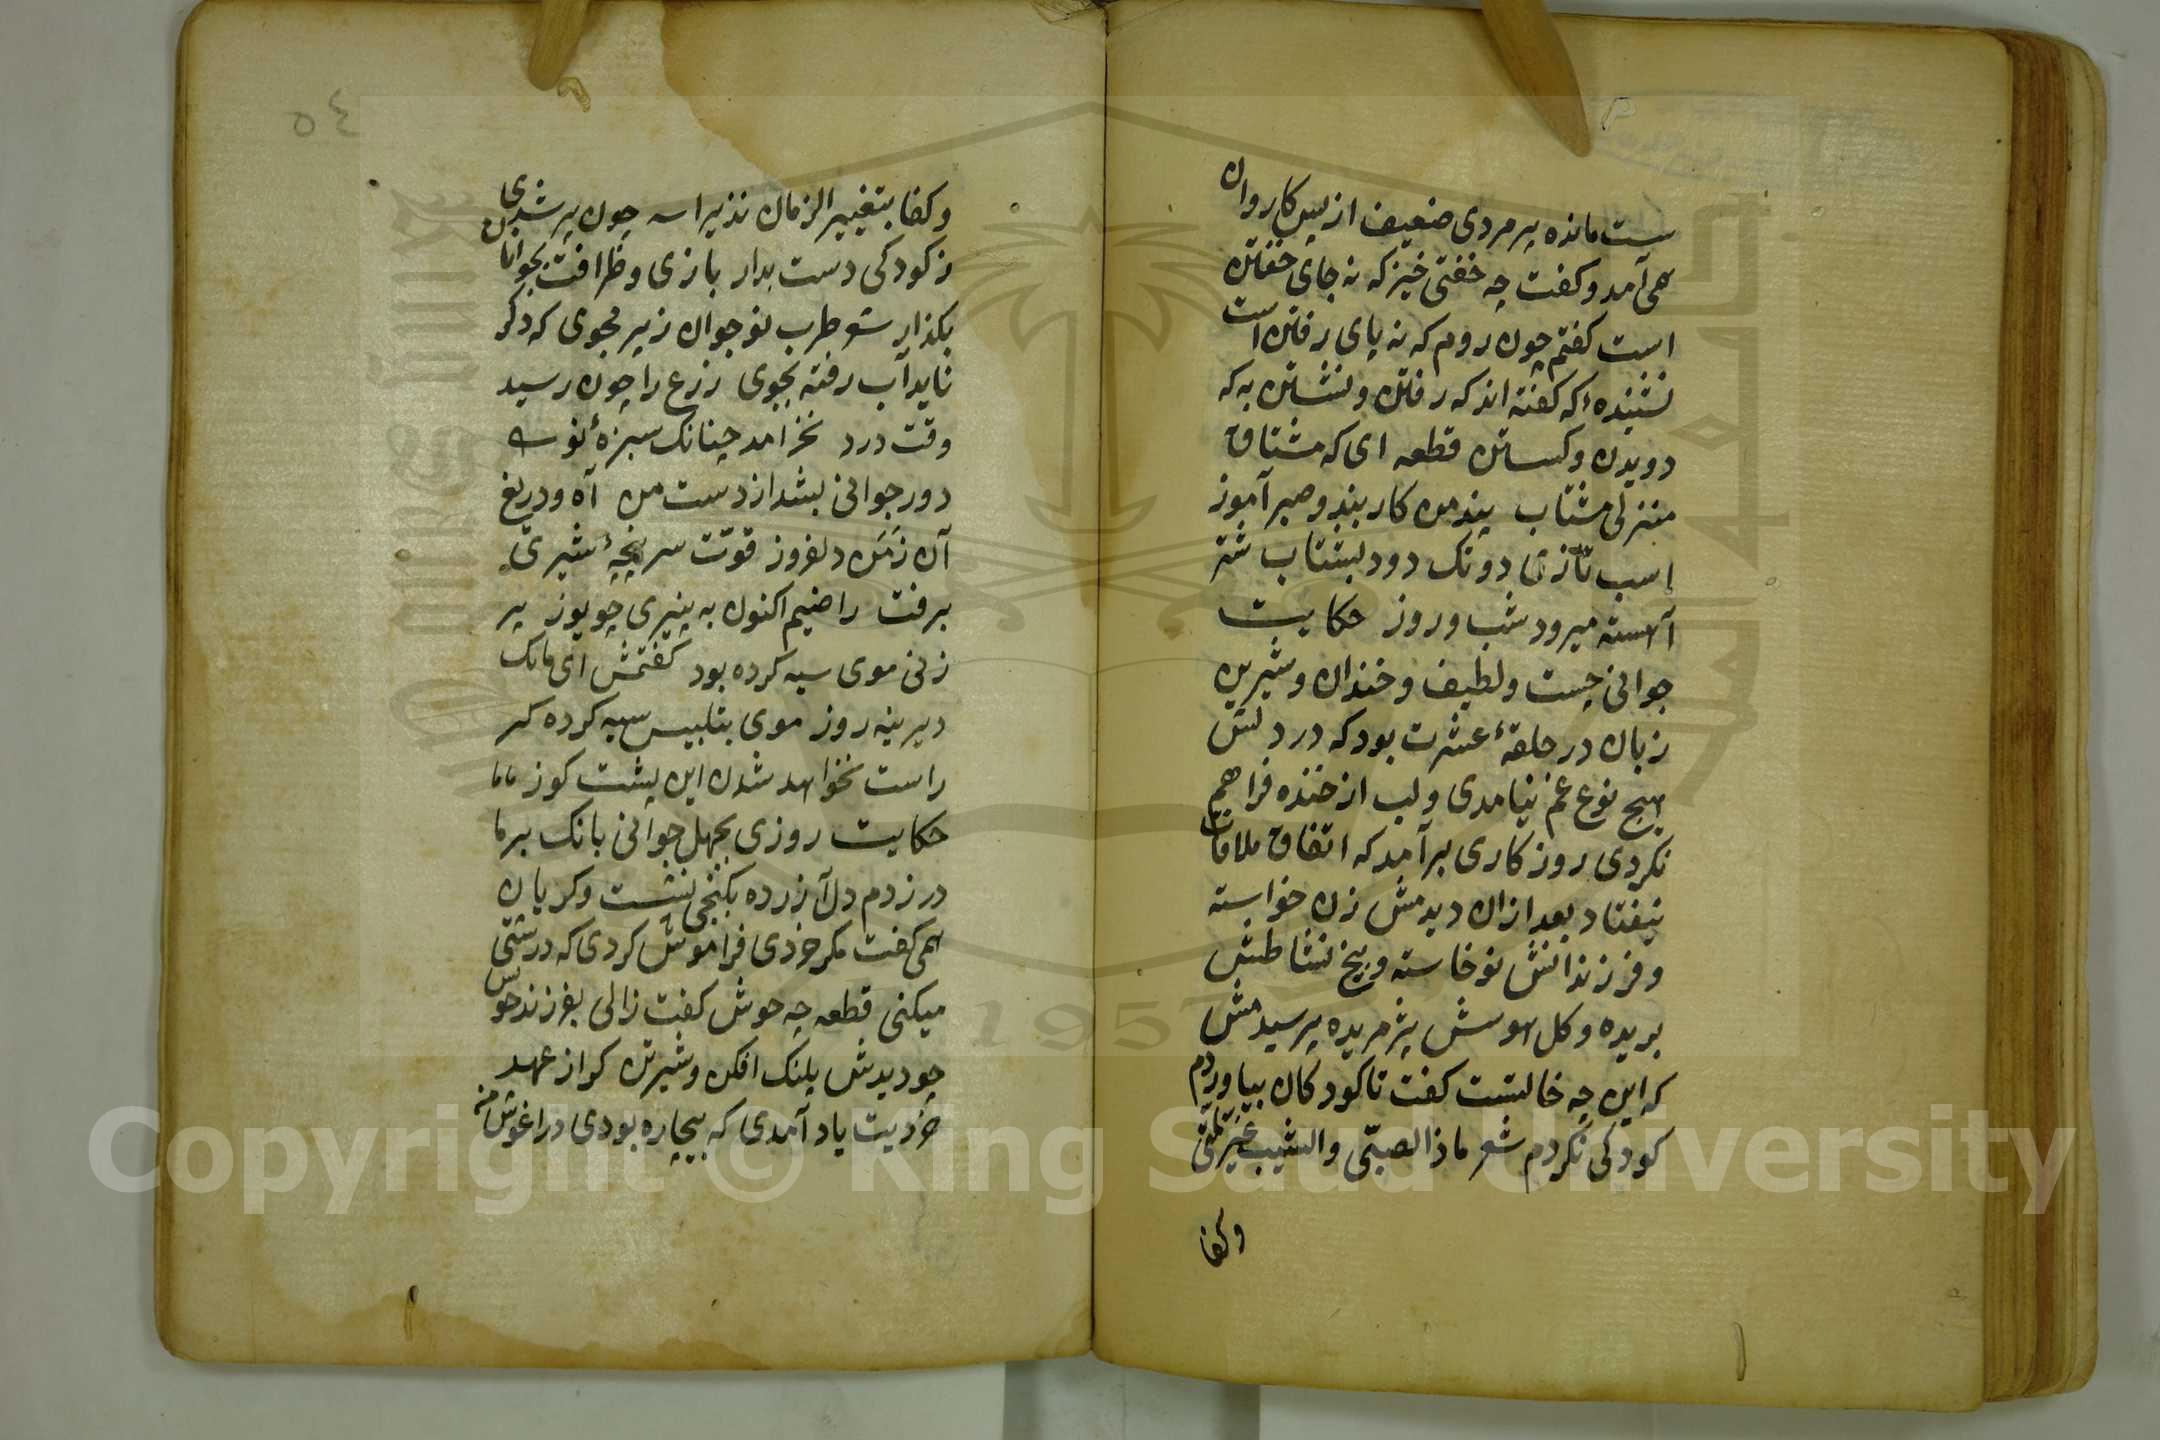 ست مانده پیر مردی ضعیف از پس کاروان
همی آمد و کفت چه خفتی خیز که نه جای خفتن
است کفتم چون روم که نه پای رفتن است
نشنیدهٔ که کفته اند که رفتن و نشستن به که
دویدن و کسستن قطعه ای که مشتاق
منزلی مشتاب پند من کار بند و صبر آموز
اسب تازی دو تک دود بشتاب شتر
آهسته میرود شب و روز حکایت
جوانی چست و لطیف و خندان و شیرین
زبان در حلقهٔ عشرت بود که در دلش
هیج نوع غم نیامدی و لب از خنده فراهم
نکردی روز کاری برآمد که اتفاق ملاقات
نیفتاد بعد ازان دیدمش زن خواسته
و فرزندانش نوخاسته و بیخ نشاطش
بریده و کل هوسش پژمریده پرسیدمش
که این چه حالتست کفت تا کودکان بیاوردم
کودکی نکردم شعر ماذا الصبی والشیب غیر لمتی
وکفا
٥٤
وکفا بتغییر الزمان نذیرا سه چون پیر شدی
ز کودکی دست بدار بازی و ظرافت بجوانان
بکذار شعر طرب نوجوان ز پیر مجوی که دکر
ناید آب رفته بجوی زرع را چون رسید
وقت درد نخرامد چنانک سبزهٔ نو سه
دور جوانی بشد از دست من آه و دریغ
آن زمن دلفروز قوت سر پنجهٔ شیری
برفت راضیم اکنون به پنیری چو یوز پیر
زنی موی سیه کرده بود کفتمش ای مامک
دیرینه روز موی بتلبیس سیه کرده کیر
راست نخواهد شدن این پشت کوز
حکایت روزی بجهل جوانی بانک بر ما
در زدم دل آزرده بکنجی نشست و کریان
همی کفت مکر خردی فراموش کردی که درشتی
میکنی قطعه چه خوش کفت زالی بفرزند خویش
چو دیدش پلنک افکن و شیرتن کر از عهد
خردیت یاد آمدی که بیچاره بودی در اغوش من
Copyright © King Saud University
1957